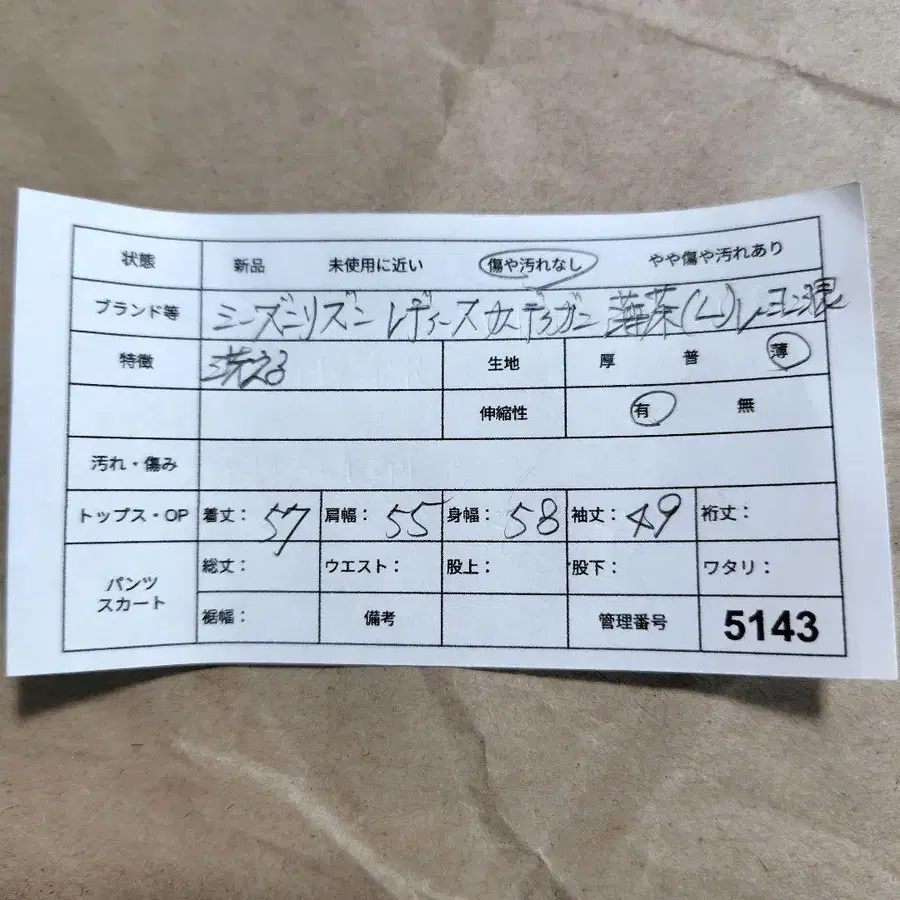 状態 新品 未使用に近い 傷や汚れなし やや傷や汚れあり
ブランド等 シーズンリズン レディース カーデガン 薄茶(L)レーヨン混
特徴 洗える 生地 厚 普 薄
伸縮性 有 無
汚れ・傷み
トップス・OP 着丈: 57 肩幅: 55 身幅: 58 袖丈: 49 裄丈:
パンツ スカート 総丈: ウエスト: 股上: 股下: ワタリ:
裾幅: 備考 管理番号 5143